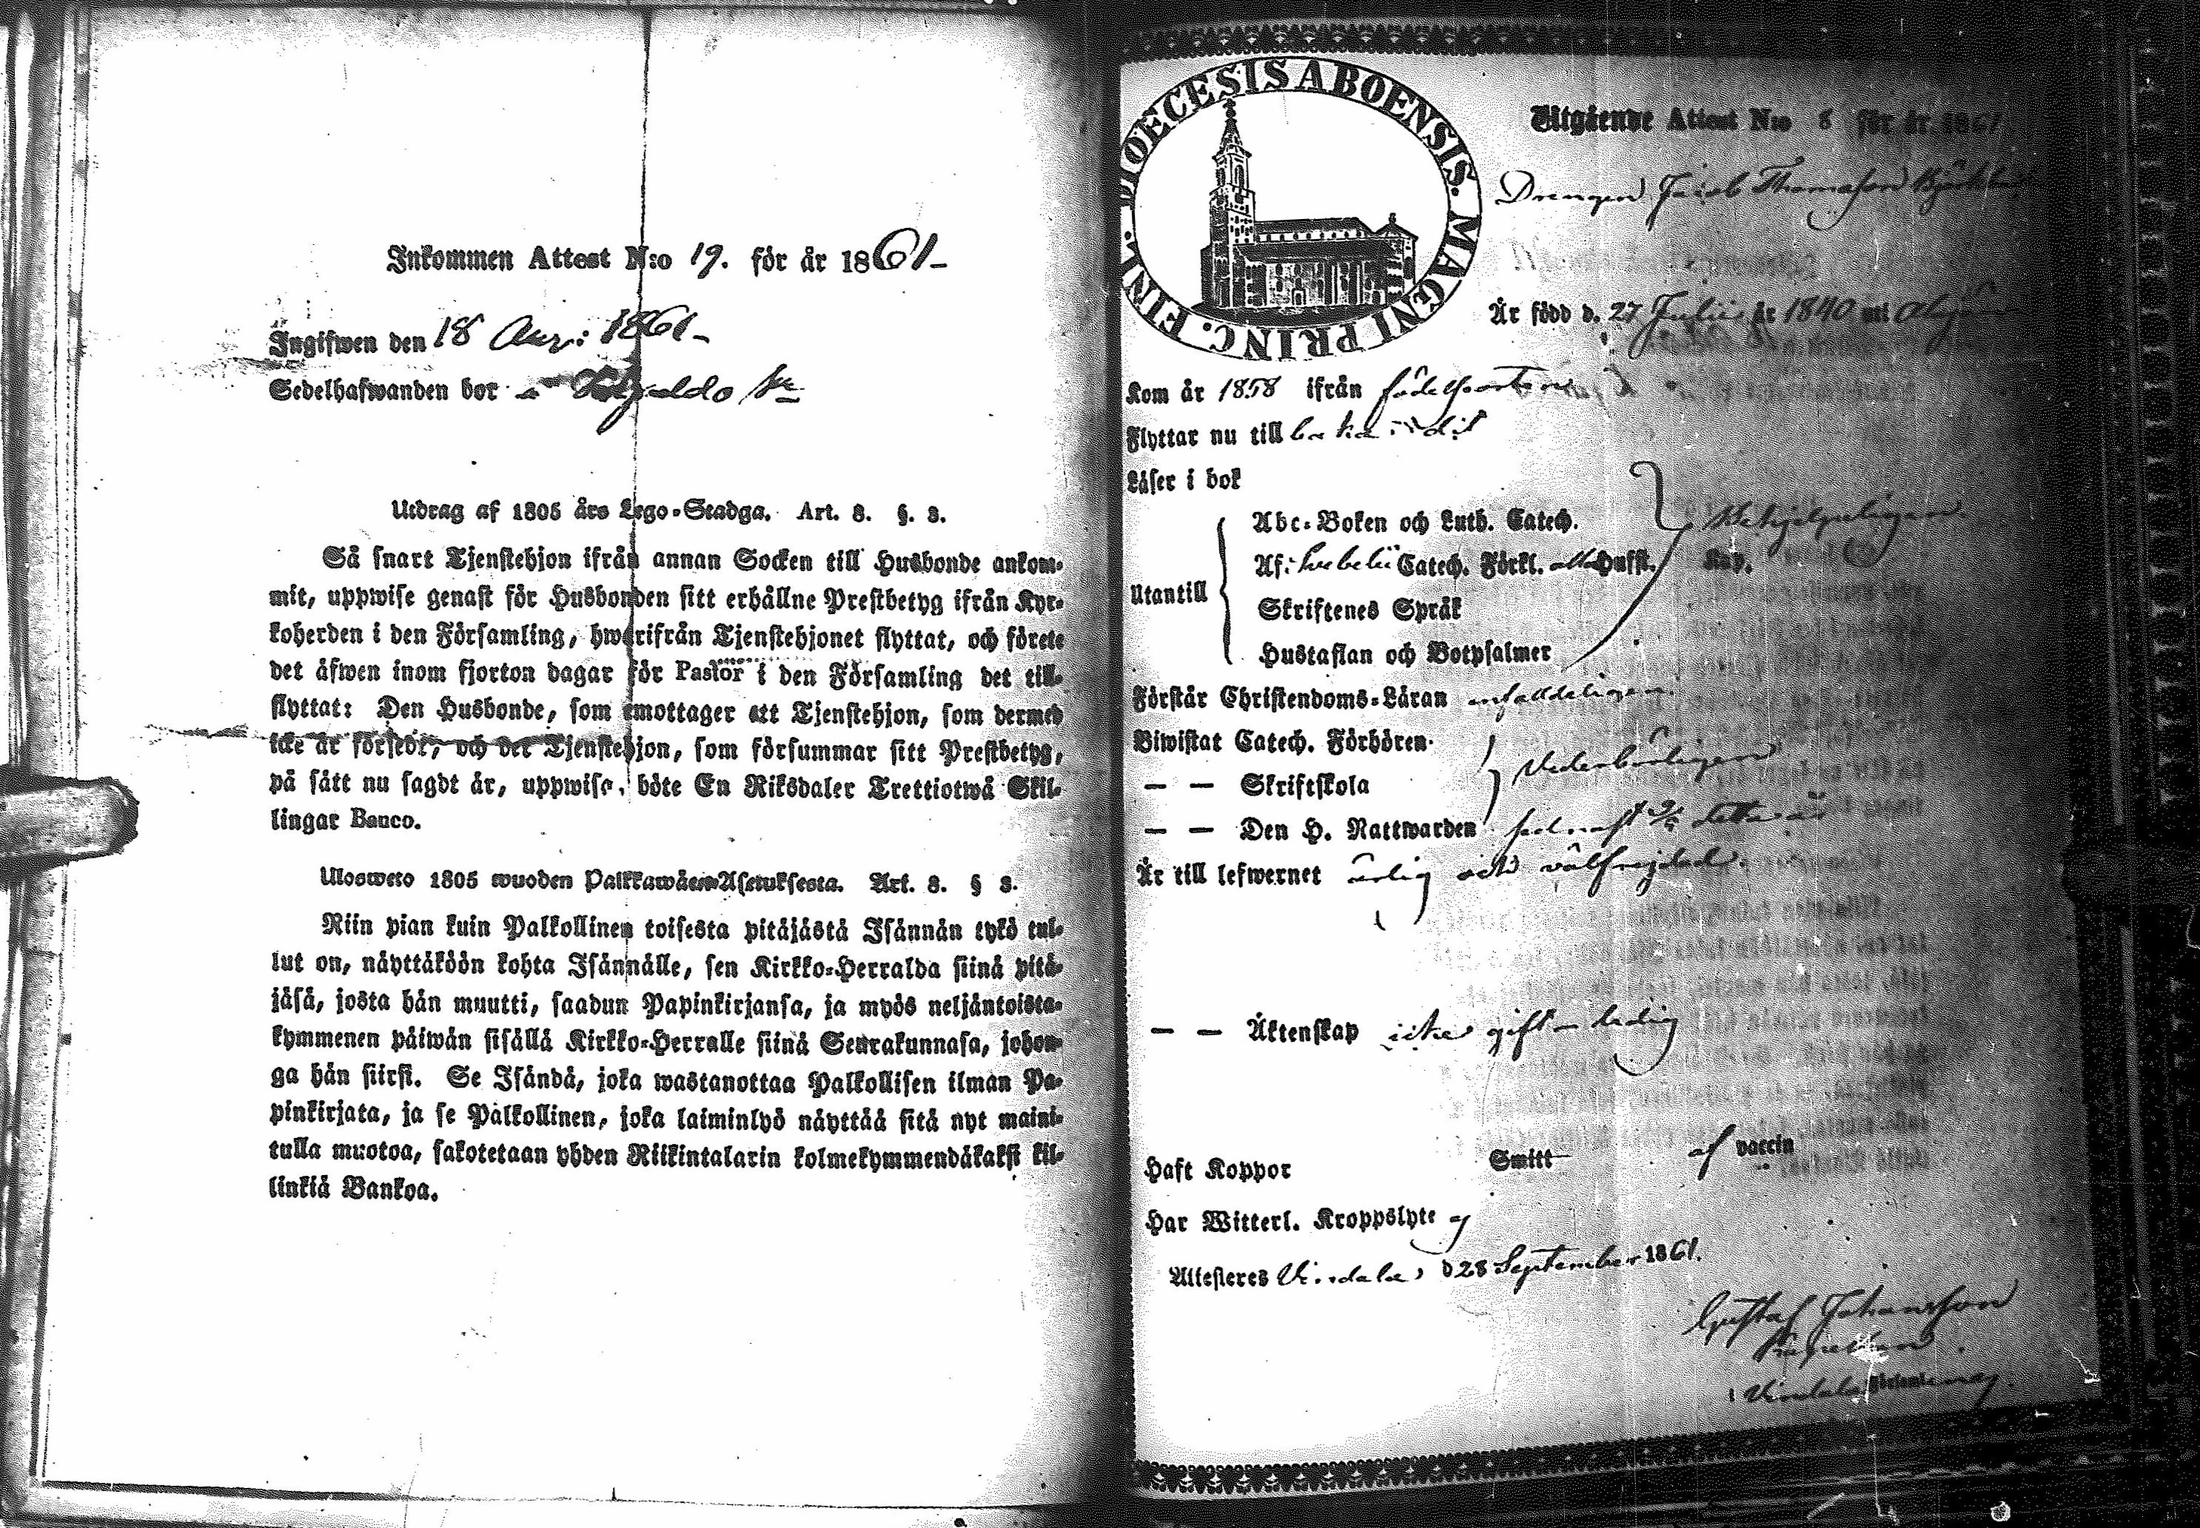 Inkommen Attest N:o 19. för år 1861-
Ingifwen den 18 1861-
Sedelhafwanden bor
Utdrag af 1805 års Lego-Stadga. Art. 8. §. 3.
Så snart Tjenstehjon ifrån annan Socken till Husbonde ankom-
mit, uppwise genast för Husbonden sitt erhållne Prestbetyg ifrån Kyr-
koherden i den Församling, hwarifrån Tjenstehjonet flyttat, och förete
det äfwen inom fjorton dagar för Pastor i den Församling det till-
flyttat: Den Husbonde, som emottager ett Tjenstehjon, som dermed
icke är försedt, och det Tjenstehjon, som försummar sitt Prestbetyg,
på sätt nu sagdt är, uppwisa, böte En Riksdaler Trettiotwå Skil-
lingar Banco.
Ulosweto 1805 wuoden Palkkawäen-Asetuksesta. Art. 8. § 3.
Niin pian kuin Palkollinen toisesta pitäjästä Isännän tykö tul-
lut on, näyttäköön kohta Isännälle, sen Kirkko-Herralda siinä pitä-
jäsä, josta hän muutti, saadun Papinkirjansa, ja myös neljäntoista-
kymmenen päiwän sisällä Kirkko-Herralle siinä Seurakunnasa, johon-
ga hän siirsi. Se Isändä, joka wastanottaa Palkollisen ilman Pa-
pinkirjata, ja se Palkollinen, joka laiminlyö näyttää sitä nyt maini-
tulla muotoa, sakotetaan yhden Riikintalarin kolmekymmendäkaksi kil-
linkiä Bankoa.
DIOECESIS ABOENSIS. MAGNI PRINC. FINL.
Utgående Attest N:o 8 för år 1861
Drengen Jacob Thomasson
Är född d. 27 Julii år 1840 uti
Kom år 1858 ifrån födelseorten
Flyttar nu till baka dit
Läser i bok
Utantill
Abc-Boken och Luth. Catech.
Af: Svebelii Catech. Förkl. Hufst. Kap.
Skriftenes Språk
Hustaflan och Botpsalmer
Behjelpeligen
Förstår Christendoms-Läran
Biwistat Catech. Förhören
— — Skriftskola
Vederbörligen
— — Den H. Nattwarden detta år
Är till lefwernet ärlig och välfrejdad.
— — Äktenskap icke gift – ledig
Haft Koppor Smitt af vaccin
Har Witterl. Kroppslyte ej
Attesteres Virdala, d 28 September 1861.
Gustaf Johansson
Kapellan